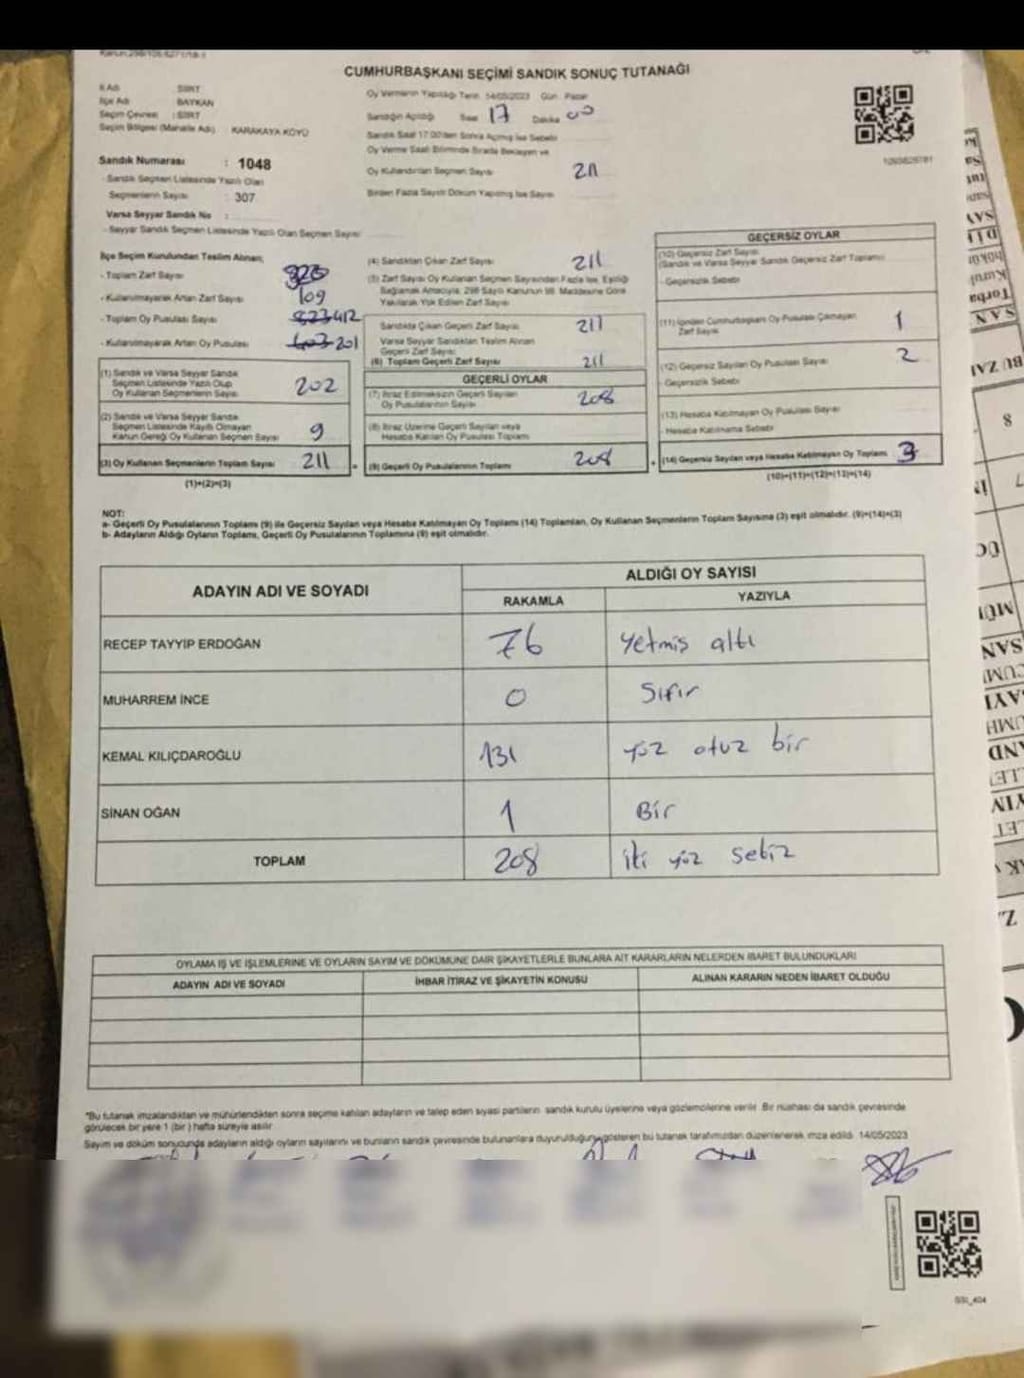 CUMHURBAŞKANI SEÇİMİ SANDIK SONUÇ TUTANAĞI
İl Adı : SİİRT
İlçe Adı : BAYKAN
Seçim Çevresi : SİİRT
Seçim Bölgesi (Mahalle Adı) : KARAKAYA KÖYÜ
Sandık Numarası : 1048
- Sandık Seçmen Listesinde Yazılı Olan
Seçmenlerin Sayısı : 307
Varsa Seyyar Sandık No :
- Seyyar Sandık Seçmen Listesinde Yazılı Olan Seçmen Sayısı
Oy Vermenin Yapıldığı Tarih 14/05/2023 Gün Pazar
Sandığın Açıldığı Saat 17 Dakika 00
Sandık Saat 17:00'den Sonra Açılmış İse Sebebi
Oy Verme Saati Bitiminde Sırada Bekleyen ve
Oy Kullandırılan Seçmen Sayısı 211
Birden Fazla Sayım Döküm Yapılmış İse Sayısı
İlçe Seçim Kurulundan Teslim Alınan;
- Toplam Zarf Sayısı
- Kullanılmayarak Artan Zarf Sayısı 109
- Toplam Oy Pusulası Sayısı 823 412
- Kullanılmayarak Artan Oy Pusulası 603 201
(1) Sandık ve Varsa Seyyar Sandık
Seçmen Listesinde Yazılı Olup
Oy Kullanan Seçmenlerin Sayısı 202
(2) Sandık ve Varsa Seyyar Sandık
Seçmen Listesinde Kayıtlı Olmayan
Kanun Gereği Oy Kullanan Seçmen Sayısı 9
(3) Oy Kullanan Seçmenlerin Toplam Sayısı 211
(1)+(2)=(3)
(4) Sandıktan Çıkan Zarf Sayısı 211
(5) Zarf Sayısı Oy Kullanan Seçmen Sayısından Fazla İse, Eşitliği
Sağlamak Amacıyla, 298 Sayılı Kanunun 98. Maddesine Göre
Yakılarak Yok Edilen Zarf Sayısı
Sandıkta Çıkan Geçerli Zarf Sayısı 211
Varsa Seyyar Sandıktan Teslim Alınan
Geçerli Zarf Sayısı
(6) Toplam Geçerli Zarf Sayısı 211
GEÇERLİ OYLAR
(7) İtiraz Edilmeksizin Geçerli Sayılan
Oy Pusulalarının Sayısı 208
(8) İtiraz Üzerine Geçerli Sayılan veya
Hesaba Katılan Oy Pusulası Toplamı
(9) Geçerli Oy Pusulalarının Toplamı 208
GEÇERSİZ OYLAR
(10) Geçersiz Zarf Sayısı
(Sandık ve Varsa Seyyar Sandık Geçersiz Zarf Toplamı)
- Geçersizlik Sebebi
(11) İçinden Cumhurbaşkanı Oy Pusulası Çıkmayan
Zarf Sayısı 1
(12) Geçersiz Sayılan Oy Pusulası Sayısı 2
- Geçersizlik Sebebi
(13) Hesaba Katılmayan Oy Pusulası Sayısı
- Hesaba Katılmama Sebebi
(14) Geçersiz Sayılan veya Hesaba Katılmayan Oy Toplamı 3
(10)+(11)+(12)+(13)=(14)
NOT:
a- Geçerli Oy Pusulalarının Toplamı (9) ile Geçersiz Sayılan veya Hesaba Katılmayan Oy Toplamı (14) Toplamları, Oy Kullanan Seçmenlerin Toplam Sayısına (3) eşit olmalıdır. (9)+(14)=(3)
b- Adayların Aldığı Oyların Toplamı, Geçerli Oy Pusulalarının Toplamına (9) eşit olmalıdır.
ADAYIN ADI VE SOYADI ALDIĞI OY SAYISI
RAKAMLA YAZIYLA
RECEP TAYYİP ERDOĞAN 76 yetmis altı
MUHARREM İNCE 0 Sıfır
KEMAL KILIÇDAROĞLU 131 yüz otuz bir
SİNAN OĞAN 1 Bir
TOPLAM 208 iki yüz sekiz
OYLAMA İŞ VE İŞLEMLERİNE VE OYLARIN SAYIM VE DÖKÜMÜNE DAİR ŞİKAYETLERLE BUNLARA AİT KARARLARIN NELERDEN İBARET BULUNDUKLARI
ADAYIN ADI VE SOYADI İHBAR İTİRAZ VE ŞİKAYETİN KONUSU ALINAN KARARIN NEDEN İBARET OLDUĞU
*Bu tutanak imzalandıktan ve mühürlendikten sonra seçime katılan adayların ve talep eden siyasi partilerin sandık kurulu üyelerine veya gözlemcilerine verilir. Bir nüshası da sandık çevresinde
görülecek bir yere 1 (bir) hafta süreyle asılır.
Sayım ve döküm sonucunda adayların aldığı oyların sayılarını ve bunların sandık çevresinde bulunanlara duyurulduğunu gösteren bu tutanak tarafımızdan düzenlenerek imza edildi. 14/05/2023